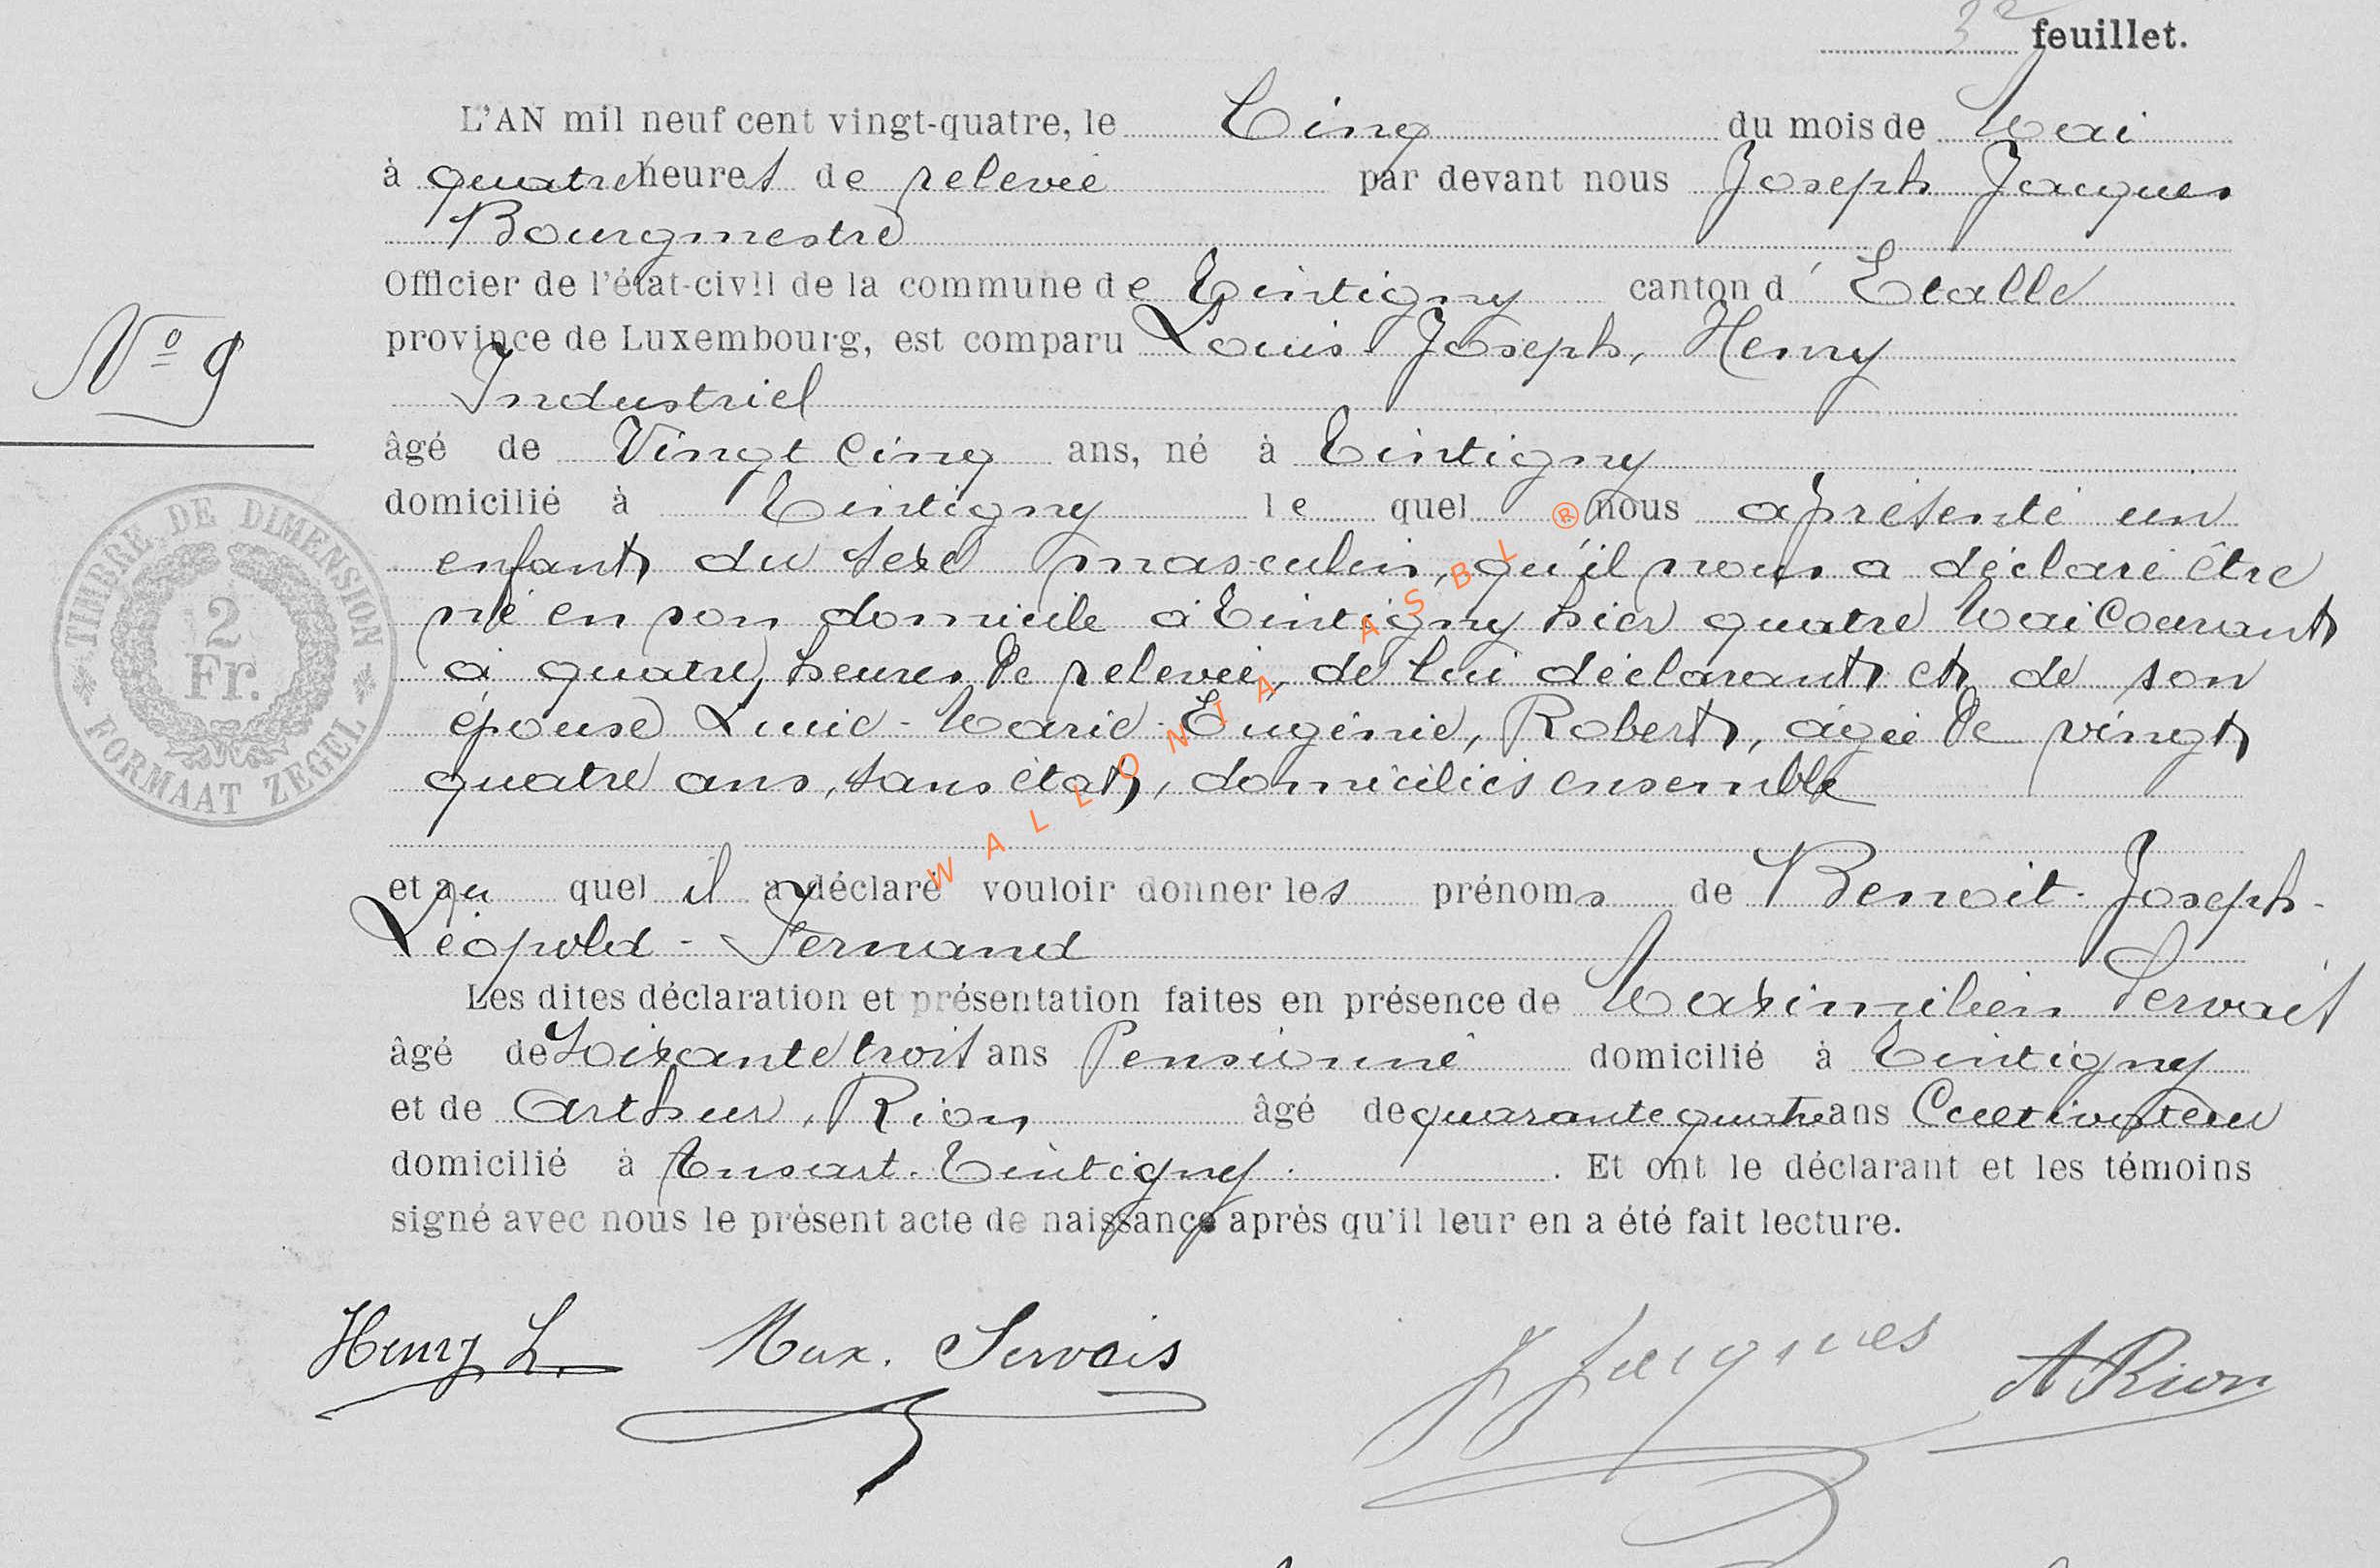 3e feuillet.
L'AN mil neuf cent vingt-quatre, le Cinq du mois de Mai
à quatre heures de relevée par devant nous Joseph Jacques
Bourgmestre
Officier de l'état-civil de la commune de Tintigny canton d' Etalle
province de Luxembourg, est comparu Louis Joseph, Henry
Industriel
N° 9
âgé de Vingt Cinq ans, né à Tintigny
domicilié à Tintigny le quel nous a présenté un
enfant du sexe masculin, qu'il nous a déclaré être
né en son domicile à Tintigny hier quatre Mai Courant
à quatre heures de relevée, de lui déclarant et de son
épouse Lucie-Marie-Eugénie, Robert, âgée de vingt
quatre ans, sans état, domiciliés ensemble
et au quel il a déclaré vouloir donner les prénoms de Benoit-Joseph-
Léopold-Fernand
Les dites déclaration et présentation faites en présence de Maximilien Servais
âgé de Soixante trois ans Pensionné domicilié à Tintigny
et de Arthur, Rion âgé de quarante quatre ans Cultivateur
domicilié à Ansart-Tintigny. Et ont le déclarant et les témoins
signé avec nous le présent acte de naissance après qu'il leur en a été fait lecture.
Henry L. Max. Servais J Jacques A Rion
TIMBRE DE DIMENSION
2
Fr.
FORMAAT ZEGEL
WALLONIA ASBL ®